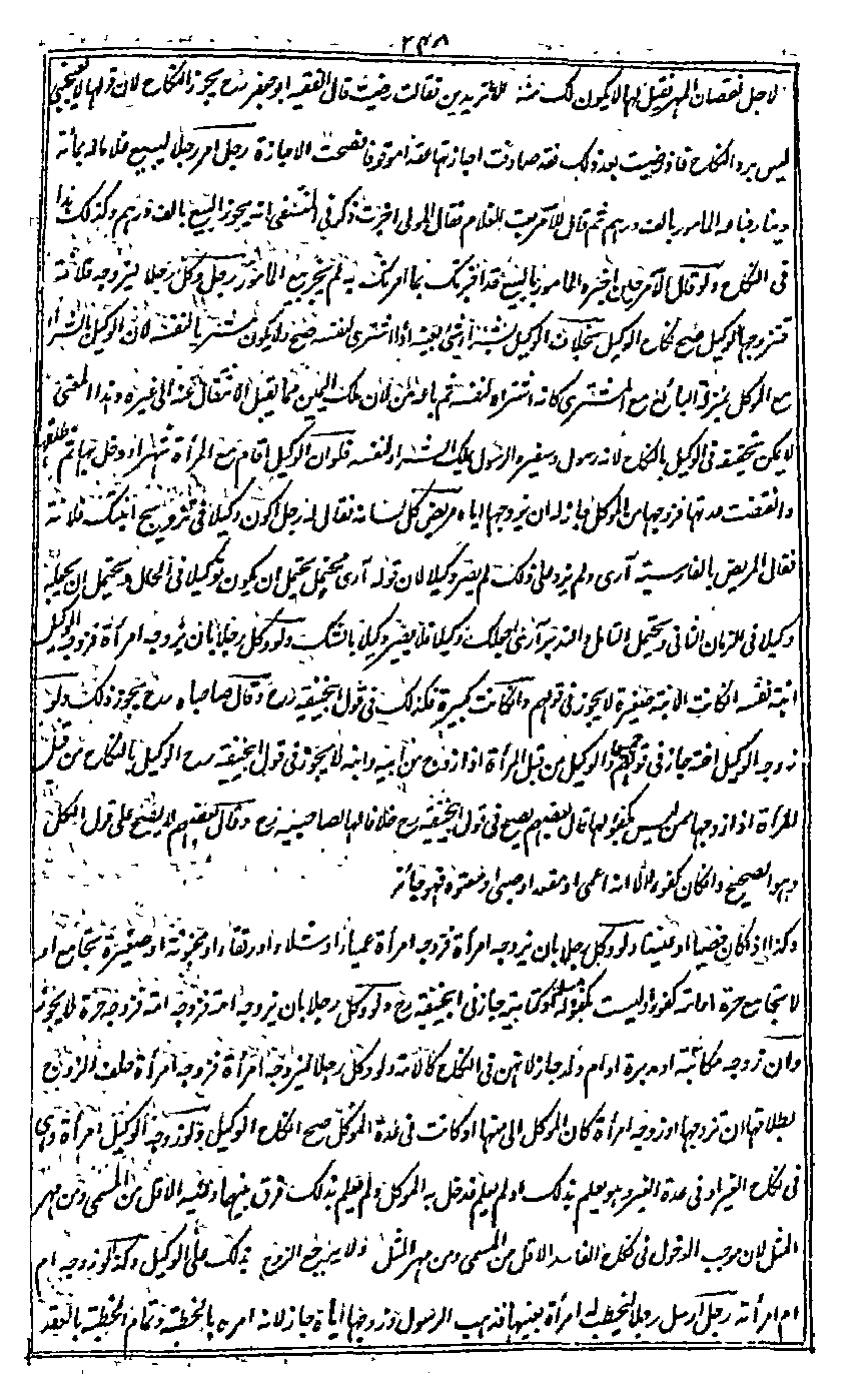 ۲۴۸
لاجل نقصان المهر فقيل لها لا يكون لك منه للاتريدين فقالت رضيت قال الفقيه ابو جعفر رح يجوز النكاح لان قولها لا يعجبني
ليس برد النكاح فاذا رضيت بعد ذلك فقد صادفت اجازتها عقدا موقوفا فصحت الاجازة رجل امر رجلا ليبيع غلامه بمأة
دينار فباعه المامور بالف درهم ثم قال للآمر بعت الغلام فقال المولى اجزت ذكر في المنتقى انه يجوز البيع بالف درهم وكذلك هذا
في النكاح ولو قال الآمر حين اخبره المامور بالبيع قد اجزتك بما امرتك به لم يجز بيع المامور رجل وكل رجلا ليزوجه فلانة
فتزوجها الوكيل صح نكاح الوكيل بخلاف الوكيل بشراء شئ بعينه اذا اشترى لنفسه صح ولا يكون مشتريا لنفسه لان الوكيل بالشراء
مع الموكل بمنزلة البائع مع المشتري كانه اشتراه لنفسه ثم باعه من لان ملك اليمين مما يقبل الانتقال عنه الى غيره وهذا المعنى
لا يمكن تحقيقه في الوكيل بالنكاح لانه رسول وسفير والرسول يملك الشراء لنفسه فلو ان الوكيل اقام مع المرأة شهرا ودخل بها ثم طلقها
وانقضت عدتها فزوجها من الموكل جاز له ان يزوجها اياه مريض كل لسانه فقال له رجل اكون وكيلا في تزويج ابنتك فلانة
فقال المريض بالفارسية آرى ولم يزد على ذلك لم يصر وكيلا لان قوله آرى محتمل يحتمل ان يكون توكيلا في الحال ويحتمل ان يجعله
وكيلا في الزمان الثاني ويحتمل التامل والتدبر آرى اجعلك وكيلا فلا يصير وكيلا بالشك ولو وكل رجلا بان يزوجه امرأة فزوجه الوكيل
ابنة نفسه انكانت الابنة صغيرة لا يجوز في قولهم وانكانت كبيرة فكذلك في قول ابيحنيفة رح وقال صاحباه رح يجوز ذلك ولو
زوجه الوكيل اخته جاز في قولهم جميعا والوكيل من قبل المرأة اذا زوج من ابيه وابنه لا يجوز في قول ابيحنيفة رح الوكيل بالنكاح من قبل
المرأة اذا زوجها ممن ليس بكفو لها قال بعضهم يصح في قول ابيحنيفة رح خلافا لصاحبيه رح وقال بعضهم لا يصح على قول الكل
وهو الصحيح وانكان كفوا الا انه اعمى او مقعد او صبي او معتوه فهو جائز
وكذا اذا كان خصيا او عنينا ولو وكل رجلا بان يزوجه امرأة فزوجه امرأة عمياء او شلاء او رتقاء او مجنونة او صغيرة تجامع او
لا تجامع حرة او امة كفو او ليست بكفو له او كتابية جاز في ابيحنيفة رح ولو وكل رجلا بان يزوجه امة فزوجه امة فزوجه حرة لا يجوز
وان زوجه مكاتبة او مدبرة او ام ولد جاز لانهن في النكاح كالامة ولو وكل رجلا ليزوجه امرأة فزوجه امرأة حلف الزوج
بطلاقها ان تزوجها او زوجه امرأة كان الموكل الى منها او كانت في عدة الموكل صح انكاح الوكيل ولو زوجه الوكيل امرأة وهي
في نكاح الغير او في عدة الغير وهو يعلم بذلك او لم يعلم فدخل به الموكل ولم يعلم بذلك فرق بينهما وعليه الاقل من المسمى ومن مهر
المثل لان موجب الدخول في نكاح الفاسد الاقل من المسمى ومن مهر المثل ولا يرجع الزوج بذلك على الوكيل وكذا لو زوجه ام
ام امرأته رجل ارسل رجلا ليخطب له امرأة بعينها فذهب الرسول وزوجها اياه جاز لانه امره بالخطبة وتمام الخطبة بالعقد